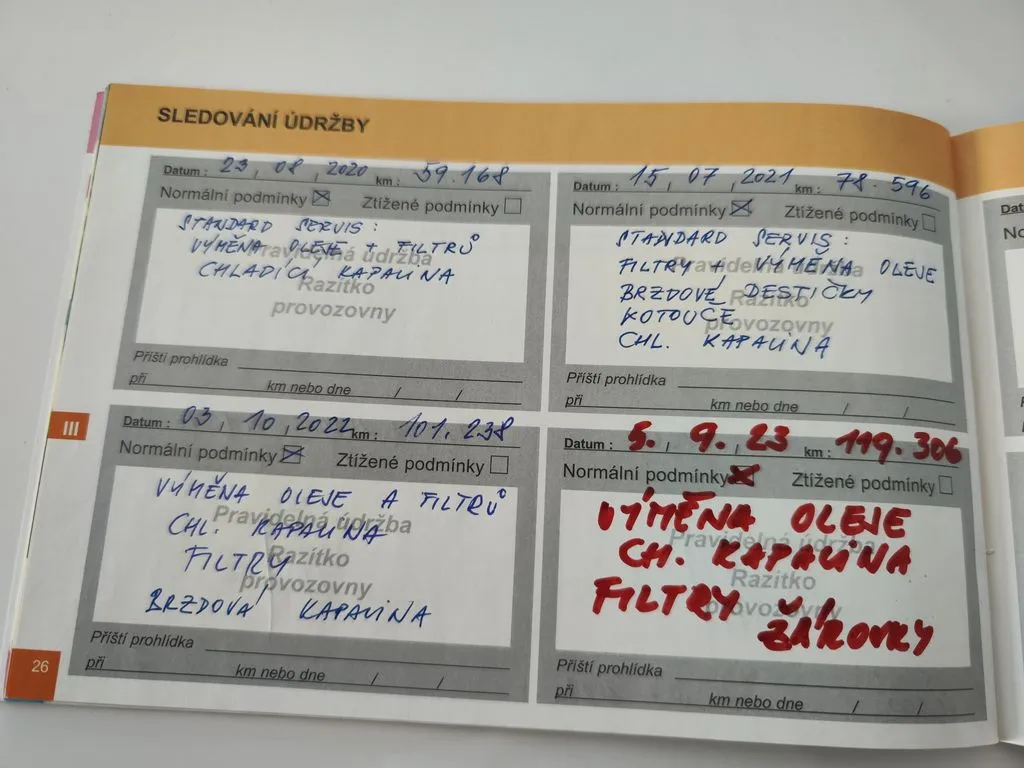 SLEDOVÁNÍ ÚDRŽBY
Datum : 23, 08, 2020 km : 59.168
Normální podmínky ☒ Ztížené podmínky ☐
STANDARD SERVIS :
VÝMĚNA OLEJE + FILTRŮ
CHLADÍCÍ KAPALINA
Pravidelná údržba
Razítko
provozovny
Příští prohlídka
při km nebo dne / /
Datum : 15, 07, 2021 km : 78.596
Normální podmínky ☒ Ztížené podmínky ☐
STANDARD SERVIS :
FILTRY + VÝMĚNA OLEJE
BRZDOVÉ DESTIČKY
KOTOUČE
CHL. KAPALINA
Pravidelná údržba
Razítko
provozovny
Příští prohlídka
při km nebo dne / /
III
Datum : 03, 10, 2022 km : 101.238
Normální podmínky ☒ Ztížené podmínky ☐
VÝMĚNA OLEJE A FILTRŮ
CHL. KAPALINA
FILTRY
BRZDOVÁ KAPALINA
Pravidelná údržba
Razítko
provozovny
Příští prohlídka
při km nebo dne / /
Datum : 5. 9. 23 km : 119.306
Normální podmínky ☒ Ztížené podmínky ☐
VÝMĚNA OLEJE
CH. KAPALINA
FILTRY
ŽÁROVKY
Pravidelná údržba
Razítko
provozovny
Příští prohlídka
při km nebo dne / /
26